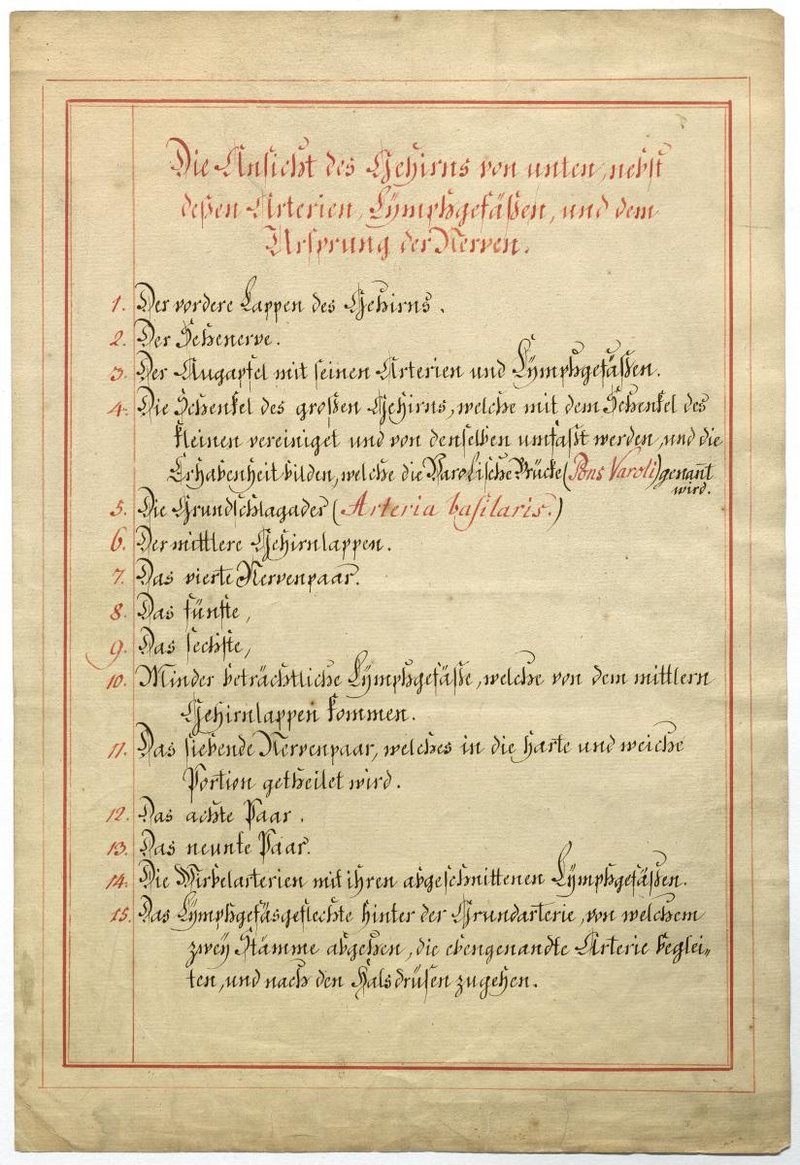 Die Ansicht des Gehirns von unten, nebst
deßen Arterien, Lÿmphgefäßen, und dem
Ursprung der Nerven.
1. Der vordere Lappen des Gehirns.
2. Der Sehenerve.
3. Der Augapfel mit seinen Arterien und Lÿmphgefäßen.
4. Die Schenkel des großen Gehirns, welche mit dem Schenkel des
kleinen vereiniget und von denselben umfaßt werden, und die
Erhabenheit bilden, welche die Varolische Brücke (Pons Varoli) genan̄t
wird.
5. Die Grundschlagader (Arteria basilaris.)
6. Der mittlere Gehirnlappen.
7. Das vierte Nervenpaar.
8. Das fünfte,
9. Das sechste,
10. Minder beträchtliche Lÿmphgefäße, welche von dem mittlern
Gehirnlappen kommen.
11. Das siebende Nervenpaar, welches in die harte und weiche
Portion getheilet wird.
12. Das achte Paar.
13. Das neunte Paar.
14. Die Wirbelarterien mit ihren abgeschnittenen Lÿmphgefäßen.
15. Das Lÿmphgefäsgeflechte hinter der Grundarterie, von welchem
zweÿ Stämme abgehen, die ebengenandte Arterie beglei=
ten, und nach den Halsdrüsen zugehen.